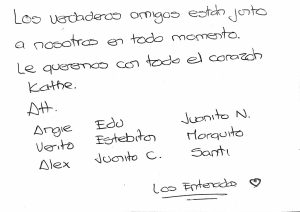 Los verdaderos amigos están junto
a nosotros en todo momento.
Le queremos con todo el corazón
Kathe.
Att.
Angie Edu Juanito N.
Verito Estebitan Marquito
Alex Juanito C. Santi
Los Enterados ♡